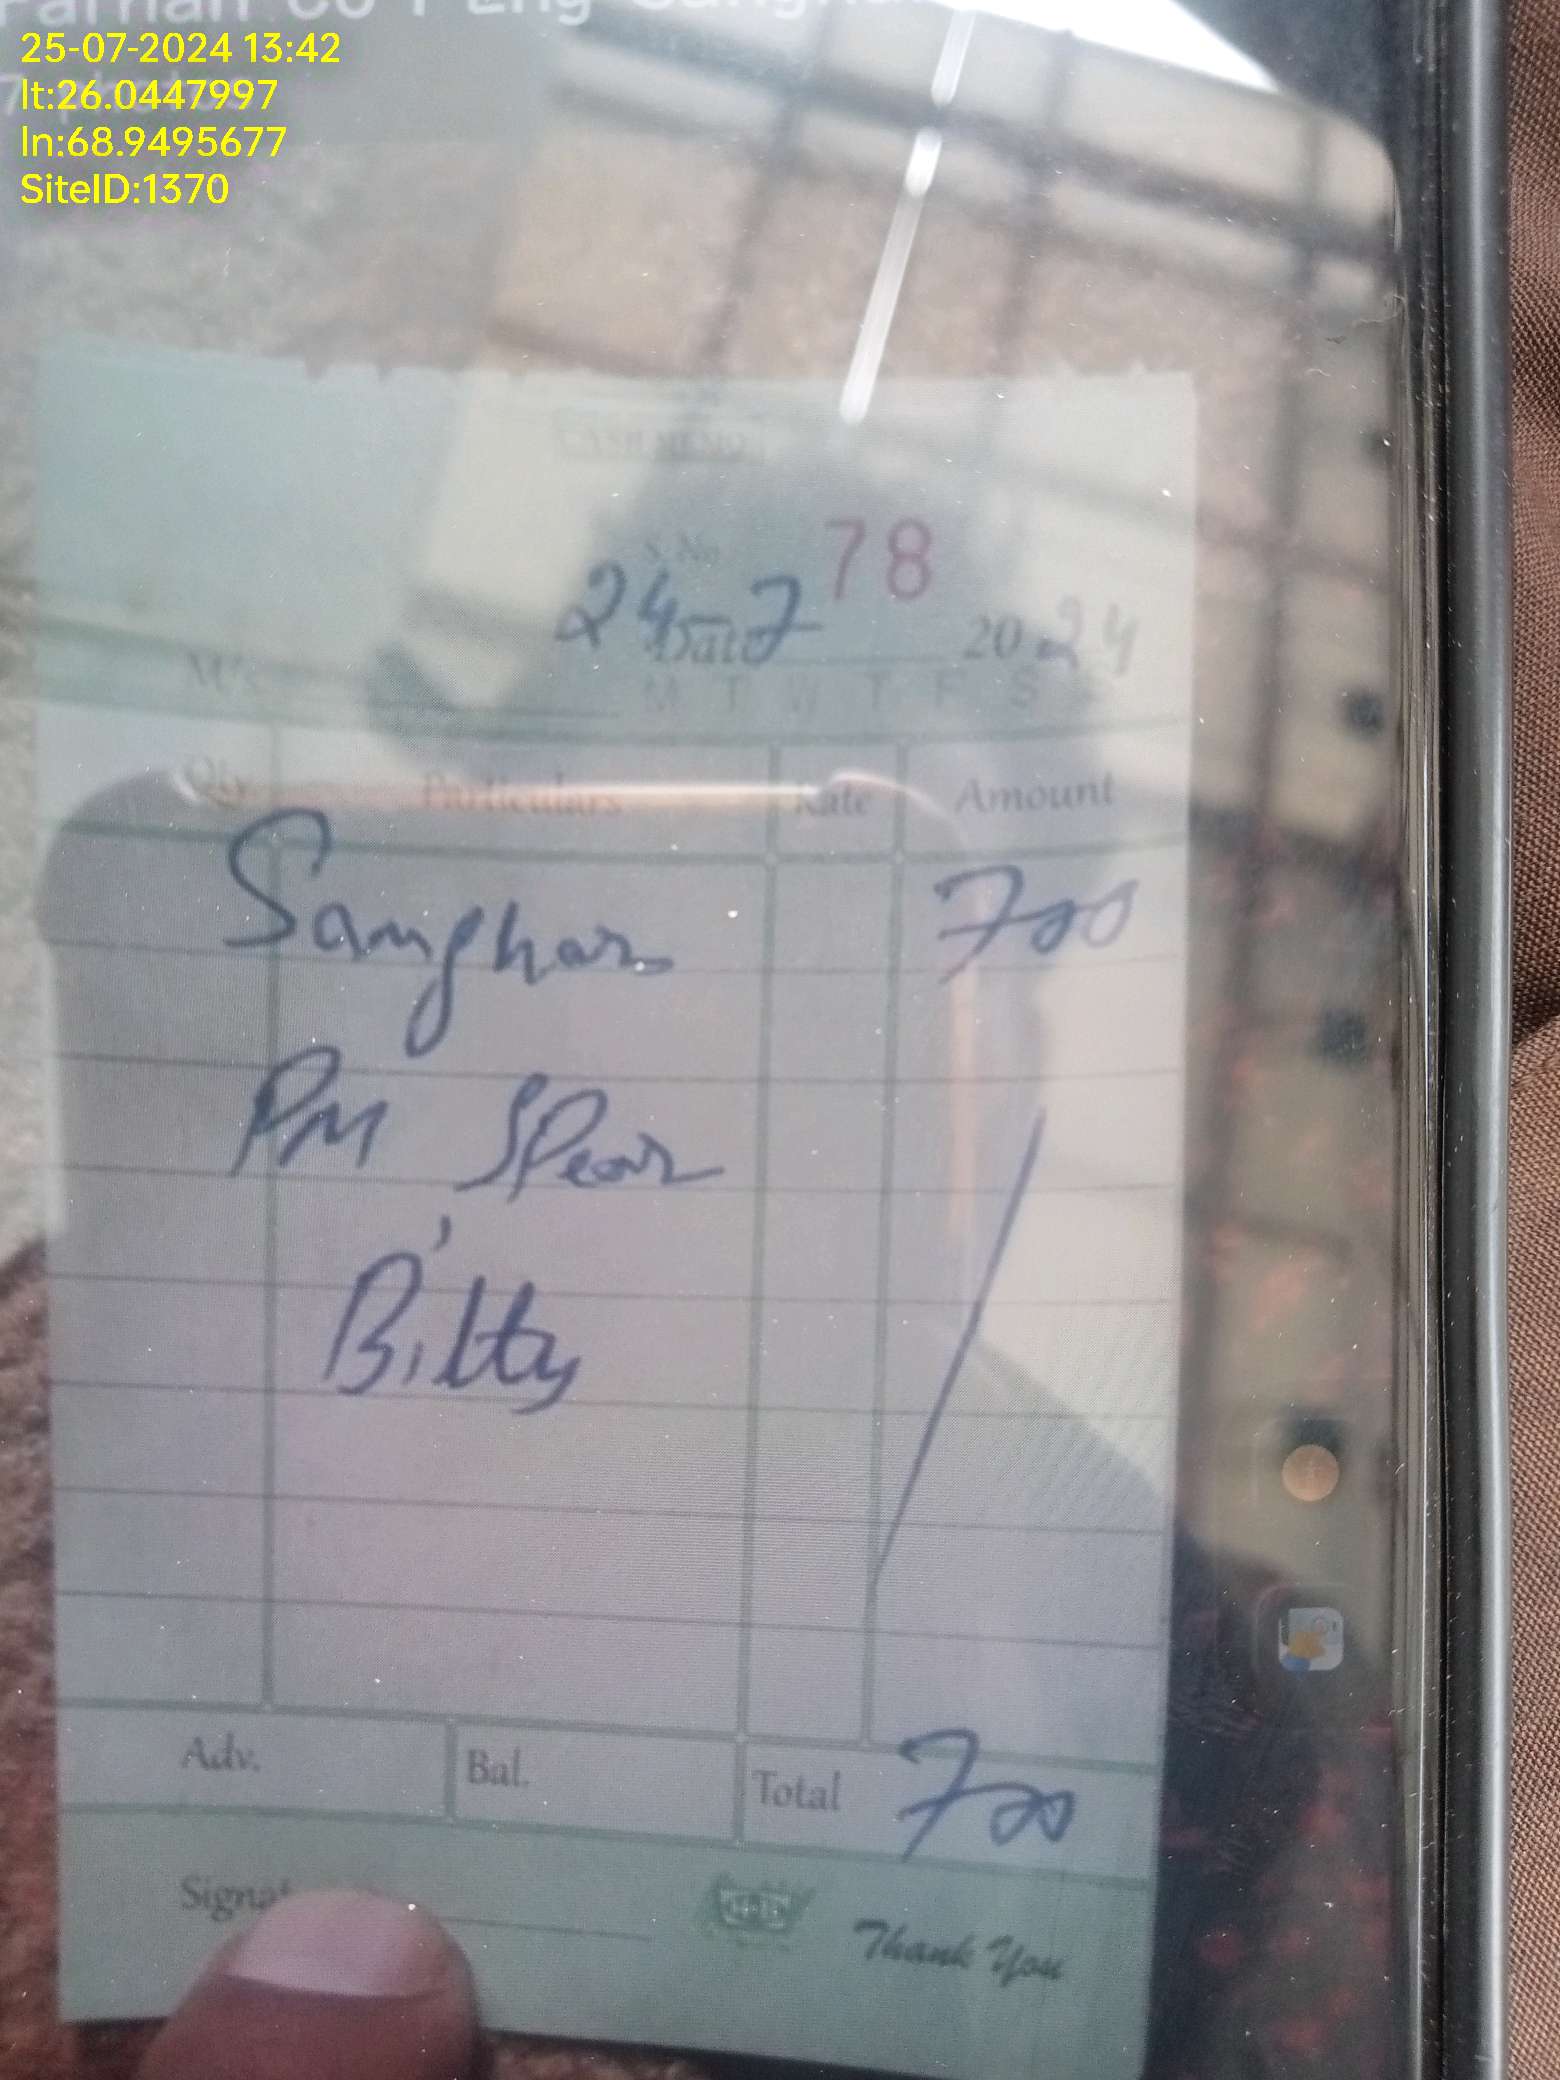 25-07-2024 13:42
lt:26.0447997
ln:68.9495677
SiteID:1370
CASH MEMO
S. No. 78
Date 24-7 2024
M/s
M T W T F S S
Qty. Particulars Rate Amount
Sanghar 700
PM Spear
Bilty
Adv. Bal. Total 700
Thank You